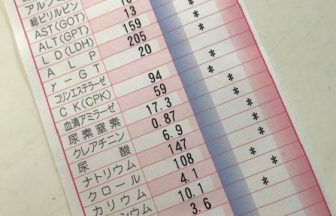 総ビリルビン
AST(GOT)
ALT(GPT) 13 *
LD(LDH) 159 *
ALP 205 *
γ-GT 20 *
コリンエステラーゼ
CK(CPK) 94 *
血清アミラーゼ 59 *
尿素窒素 17.3 *
クレアチニン 0.87 *
尿酸 6.9 *
ナトリウム 147 *
クロール 108 *
カリウム 4.1 *
シウム 10.1 *
3.6